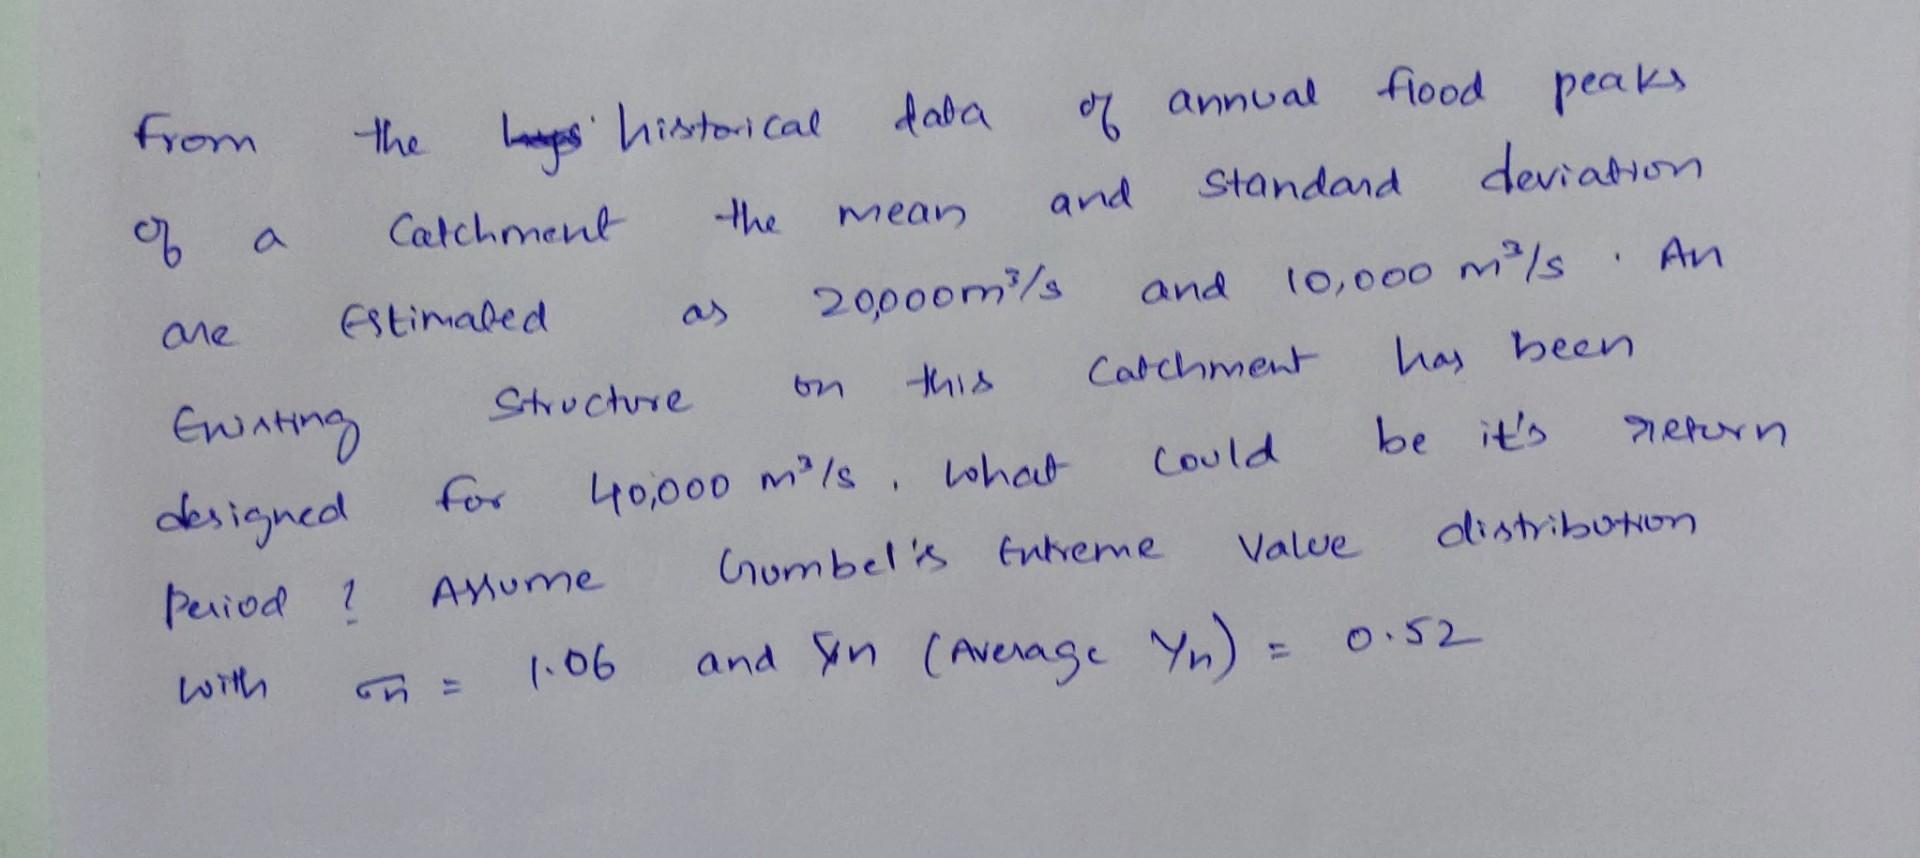 from the historical data of annual flood peaks
of a Catchment the mean and standard deviation
are Estimated as 20,000m³/s and 10,000 m³/s . An
Existing Structure on this Catchment has been
designed for 40,000 m³/s . What Could be it's return
Period ? Assume Gumbel's Extreme Value distribution
with σn = 1.06 and Yn (Average Yn) = 0.52